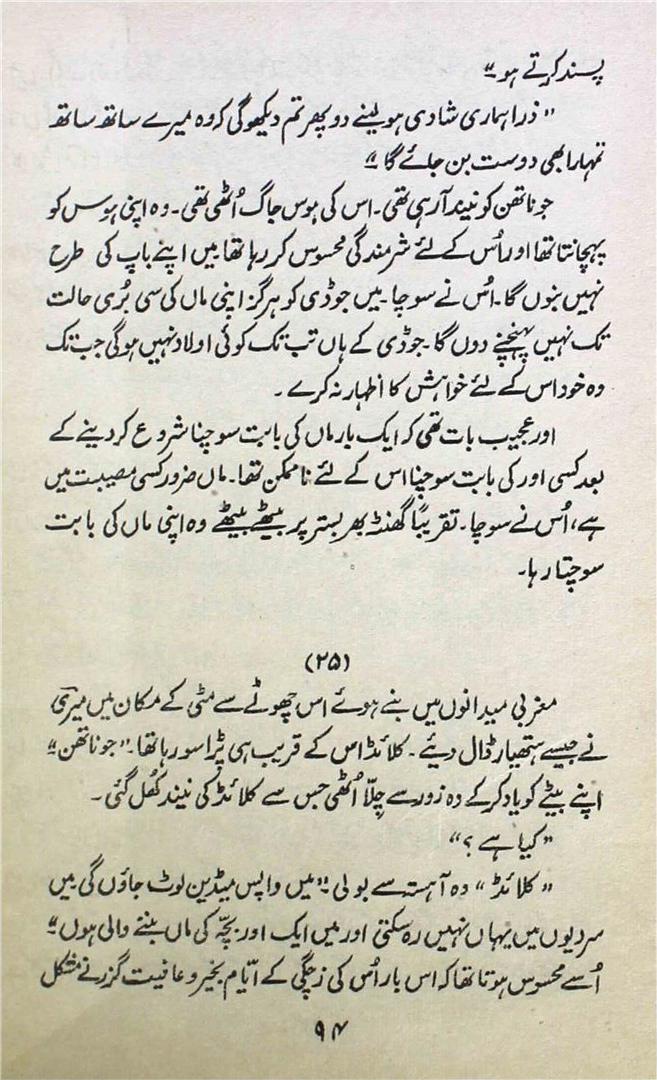 پسند کرتے ہو"
"ذرا ہماری شادی ہو لینے دو پھر تم دیکھو گی کہ وہ میرے ساتھ ساتھ
تمہارا بھی دوست بن جائے گا"
جوناتھن کو نیند آ رہی تھی۔ اس کی ہوس جاگ اُٹھی تھی۔ وہ اپنی ہوس کو
پہچانتا تھا اور اُس کے لئے شرمندگی محسوس کر رہا تھا میں اپنے باپ کی طرح
نہیں بنوں گا۔ اُس نے سوچا۔ میں جوڈی کو ہرگز اپنی ماں کی سی بُری حالت
تک نہیں پہنچنے دوں گا۔ جوڈی کے ہاں تب تک کوئی اولاد نہیں ہوگی جب تک
وہ خود اس کے لئے خواہش کا اظہار نہ کرے۔
اور عجیب بات تھی کہ ایک بار ماں کی بابت سوچنا شروع کر دینے کے
بعد کسی اور کی بابت سوچنا اس کے لئے ناممکن تھا۔ ماں ضرور کسی مصیبت میں
ہے، اُس نے سوچا۔ تقریباً گھنٹہ بھر بستر پر بیٹھے بیٹھے وہ اپنی ماں کی بابت
سوچتا رہا۔
(۲۵)
مغربی میدانوں میں بنے ہوئے اس چھوٹے سے مٹی کے مکان میں میری
نے جیسے ہتھیار ڈال دیئے۔ کلائڈ اس کے قریب ہی پڑا سو رہا تھا۔ "جوناتھن"
اپنے بیٹے کو یاد کرکے وہ زور سے چِلّا اُٹھی جس سے کلائڈ کی نیند کُھل گئی۔
"کیا ہے؟"
"کلائڈ" وہ آہستہ سے بولی "میں واپس میڈین لوٹ جاؤں گی میں
سردیوں میں یہاں نہیں رہ سکتی اور میں ایک اور بچّہ کی ماں بننے والی ہوں"
اُسے محسوس ہوتا تھا کہ اس بار اُس کی زچگی کے ایّام بخیر و عافیت گزرنے مشکل
۹۴